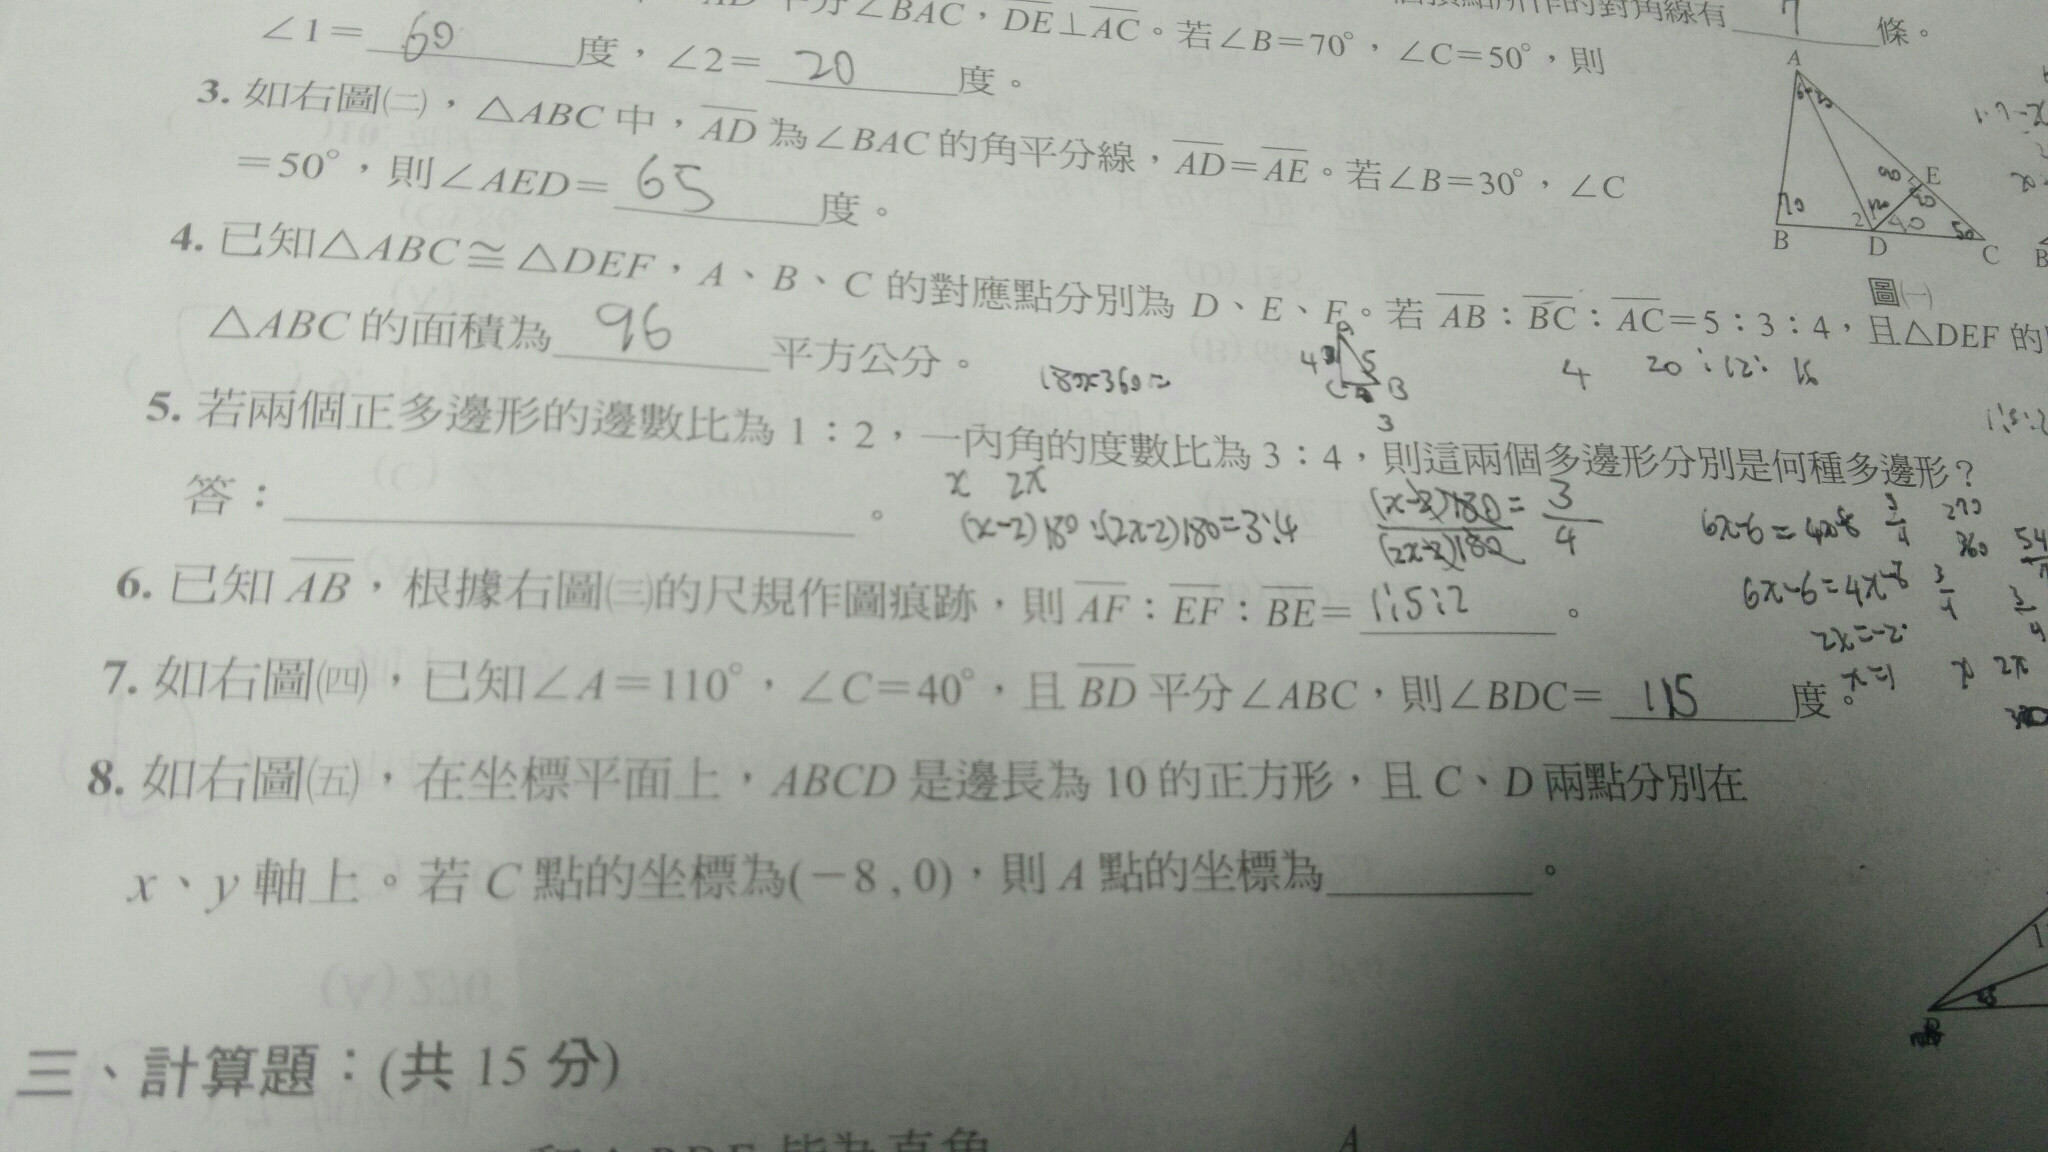 平分∠BAC，DE⊥AC。若∠B=70°，∠C=50°，則
∠1= 60 度，∠2= 20 度。
條。
3. 如右圖㈡，△ABC 中，AD 為∠BAC 的角平分線，AD=AE。若∠B=30°，∠C
=50°，則∠AED= 65 度。
4. 已知△ABC≅△DEF，A、B、C 的對應點分別為 D、E、F。若 AB：BC：AC=5：3：4，且△DEF 的
△ABC 的面積為 96 平方公分。
180x360=
4 5 C B 3
4 20:12:16
5. 若兩個正多邊形的邊數比為 1：2，一內角的度數比為 3：4，則這兩個多邊形分別是何種多邊形？
答：。
x 2x
(x-2)180:(2x-2)180=3:4
(x-2)180 = 3
(2x-2)180 4
6x-6=4x-8
270
360
6. 已知 AB，根據右圖㈢的尺規作圖痕跡，則 AF：EF：BE= 1:5:2 。
6x-6=4x-8
2x=-2
x=1
x 2x
7. 如右圖㈣，已知∠A=110°，∠C=40°，且 BD 平分∠ABC，則∠BDC= 115 度。
8. 如右圖㈤，在坐標平面上，ABCD 是邊長為 10 的正方形，且 C、D 兩點分別在
x、y 軸上。若 C 點的坐標為(－8 , 0)，則 A 點的坐標為。
三、計算題：(共 15 分)
A
A
E
70
2
40
50
B
D
C
B
圖㈠